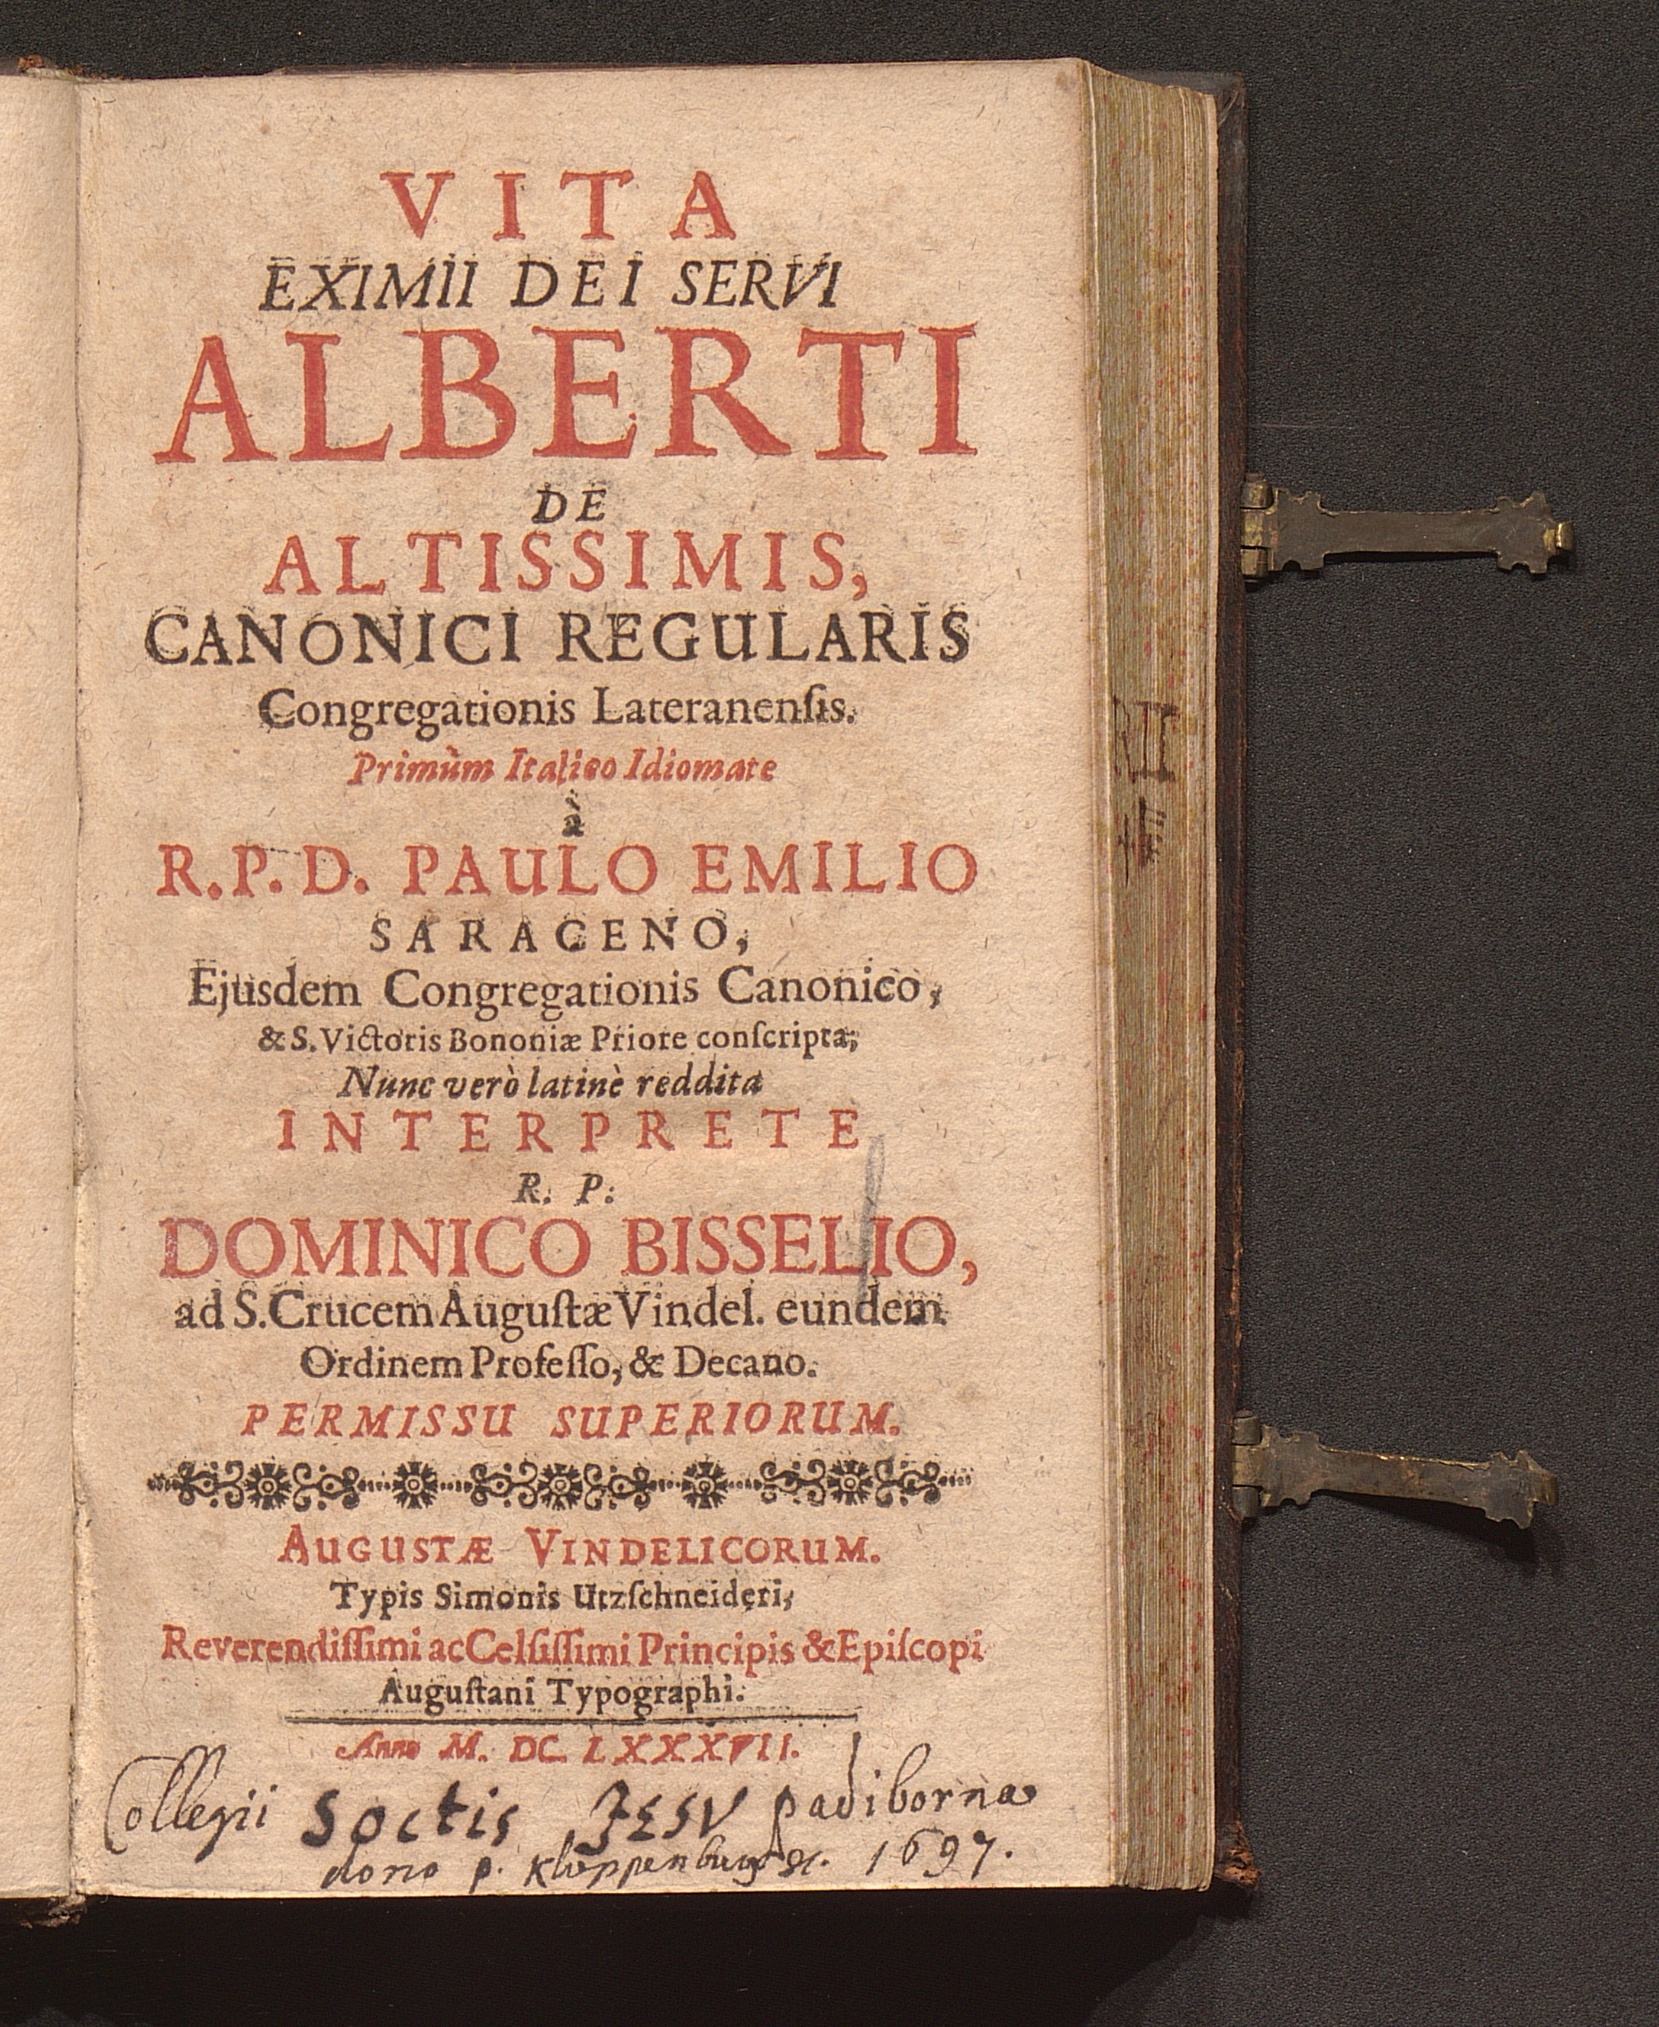 VITA
EXIMII DEI SERVI
ALBERTI
DE
ALTISSIMIS,
CANONICI REGULARIS
Congregationis Lateranenſis.
Primùm Italico Idiomate
à
R.P.D. PAULO EMILIO
SARACENO,
Ejusdem Congregationis Canonico,
& S. Victoris Bononiæ Priore conſcripta;
Nunc verò latinè reddita
INTERPRETE
R. P.
DOMINICO BISSELIO,
ad S. Crucem Auguſtæ Vindel. eundem
Ordinem Profeſſo, & Decano.
PERMISSU SUPERIORUM.
AUGUSTÆ VINDELICORUM.
Typis Simonis Utzſchneideri,
Reverendiſſimi ac Celſiſſimi Principis & Epiſcopi
Auguſtani Typographi.
Anno M. DC. LXXXVII.
Collegii Soctis JESV Padibornæ
dono p. 1697.